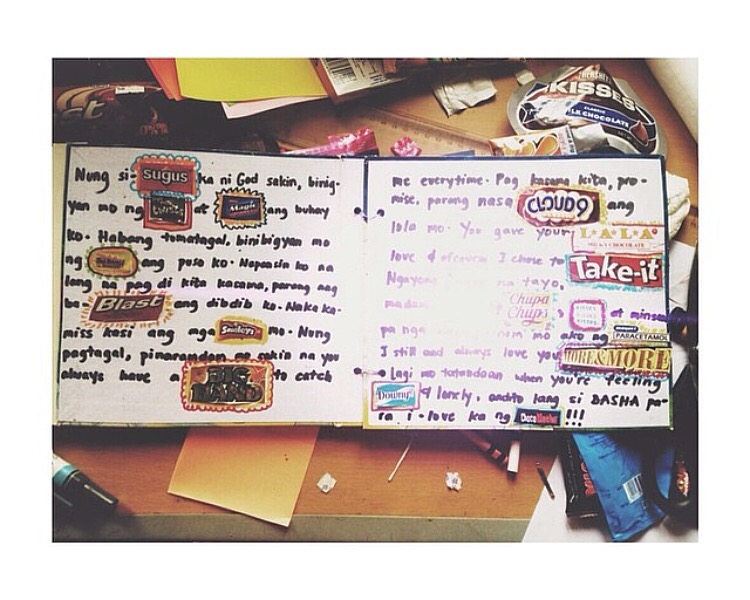 KISSES
CLASSIC
MILK CHOCOLATE
Nung si- sugus ka ni God sakin, binig-
yan mo ng twists at Magic ang buhay
ko. Habang tumatagal, binibigyan mo
ng ang puso ko. Napansin ko na
lang na pag di kita kasama, parang ang
ba- Blast ang dibdib ko. Nakaka-
miss kasi ang mga Smileys mo. Nung
pagtagal, pinaramdam mo sakin na you
always have a BIG HAND to catch
me everytime. Pag kasama kita, pro-
mise, parang nasa CLOUD9 ang
lola mo. You gave your LALA
love & ofcourse I chose to Take-it
Ngayong na tayo,
madam Chupa Chups KISSES at minsan
pa nga mo ako ng PARACETAMOL
I still and always love you MORE & MORE
Lagi mo tatandaan when you're feeling
Downy & lonely, andito lang si BASHA pa-
ra - love ka ng !!!